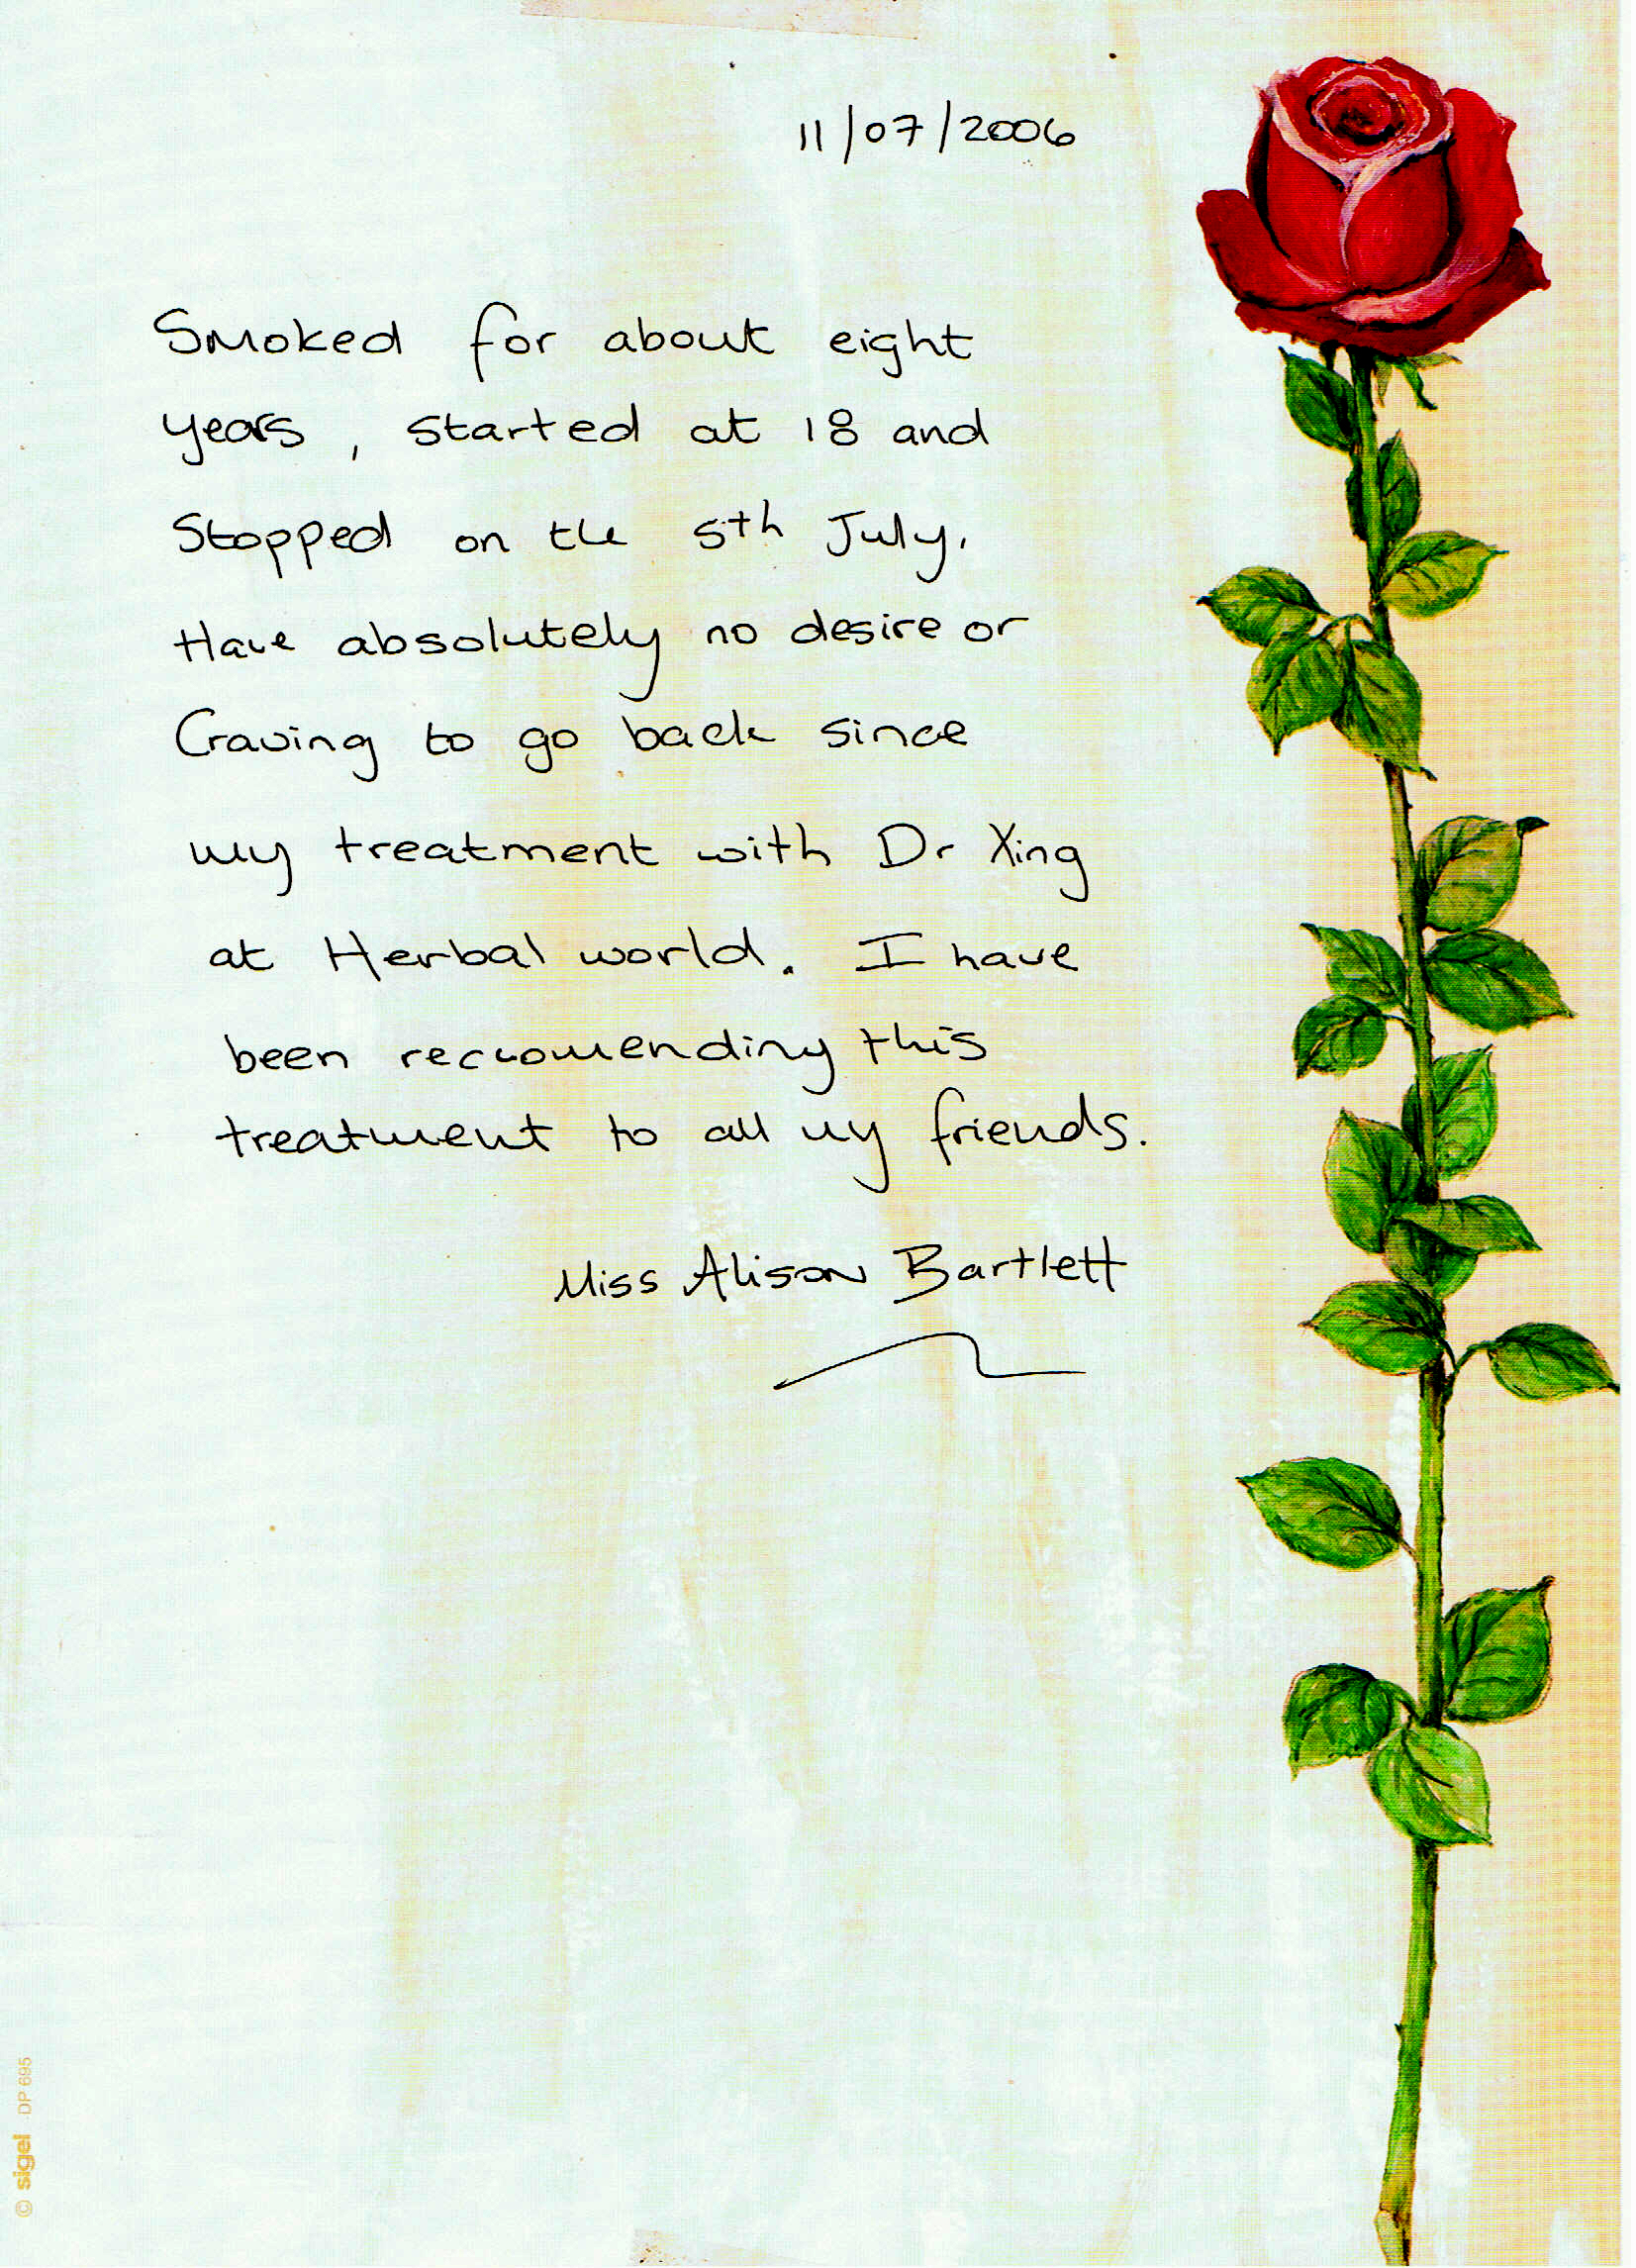 11/07/2006
Smoked for about eight
years, started at 18 and
Stopped on the 5th July.
Have absolutely no desire or
Craving to go back since
my treatment with Dr Xing
at Herbal world. I have
been reccomending this
treatment to all my friends.
Miss Alison Bartlett
© sigel DP 695